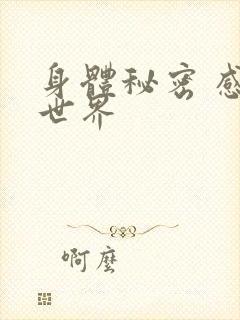 身體秘密 感
世界
啊麼